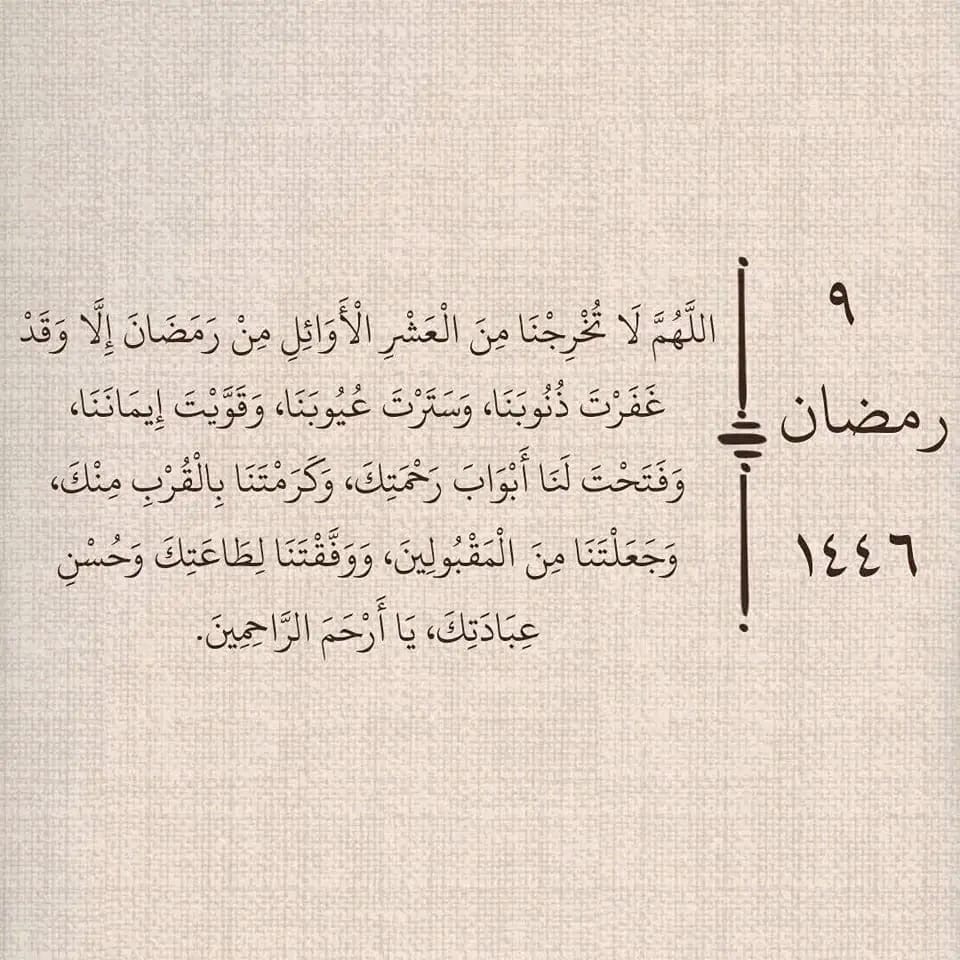 ٩
رمضان
١٤٤٦
اللَّهُمَّ لَا تُخْرِجْنَا مِنَ الْعَشْرِ الْأَوَائِلِ مِنْ رَمَضَانَ إِلَّا وَقَدْ
غَفَرْتَ ذُنُوبَنَا، وَسَتَرْتَ عُيُوبَنَا، وَقَوَّيْتَ إِيمَانَنَا،
وَفَتَحْتَ لَنَا أَبْوَابَ رَحْمَتِكَ، وَكَرَمْتَنَا بِالْقُرْبِ مِنْكَ،
وَجَعَلْتَنَا مِنَ الْمَقْبُولِينَ، وَوَفَّقْتَنَا لِطَاعَتِكَ وَحُسْنِ
عِبَادَتِكَ، يَا أَرْحَمَ الرَّاحِمِينَ.